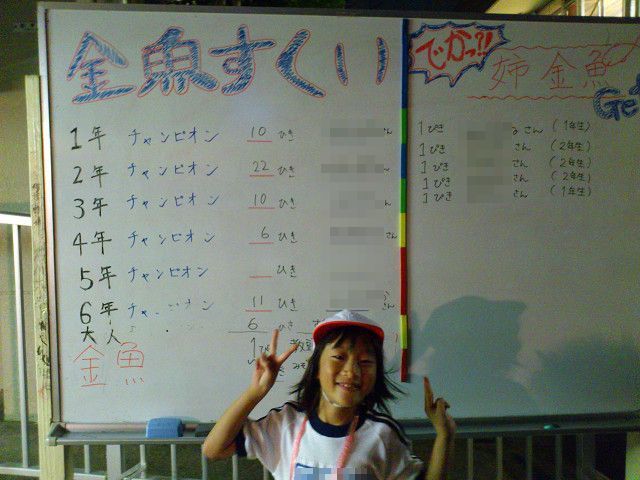 金魚すくい
1年 チャンピオン 10 ひき ん
2年 チャンピオン 22 ひき ん
3年 チャンピオン 10 ひき ん
4年 チャンピオン 6 ひき さん
5年 チャンピオン ひき
6年 チャ ン 11 ひき さん
大人 6 ひき
金魚
でかっ?!
姉金魚
Ge
1ぴき さん (1年生)
1ぴき さん (2年生)
1ぴき さん (2年生)
1ぴき さん (2年生)
1ぴき さん (1年生)